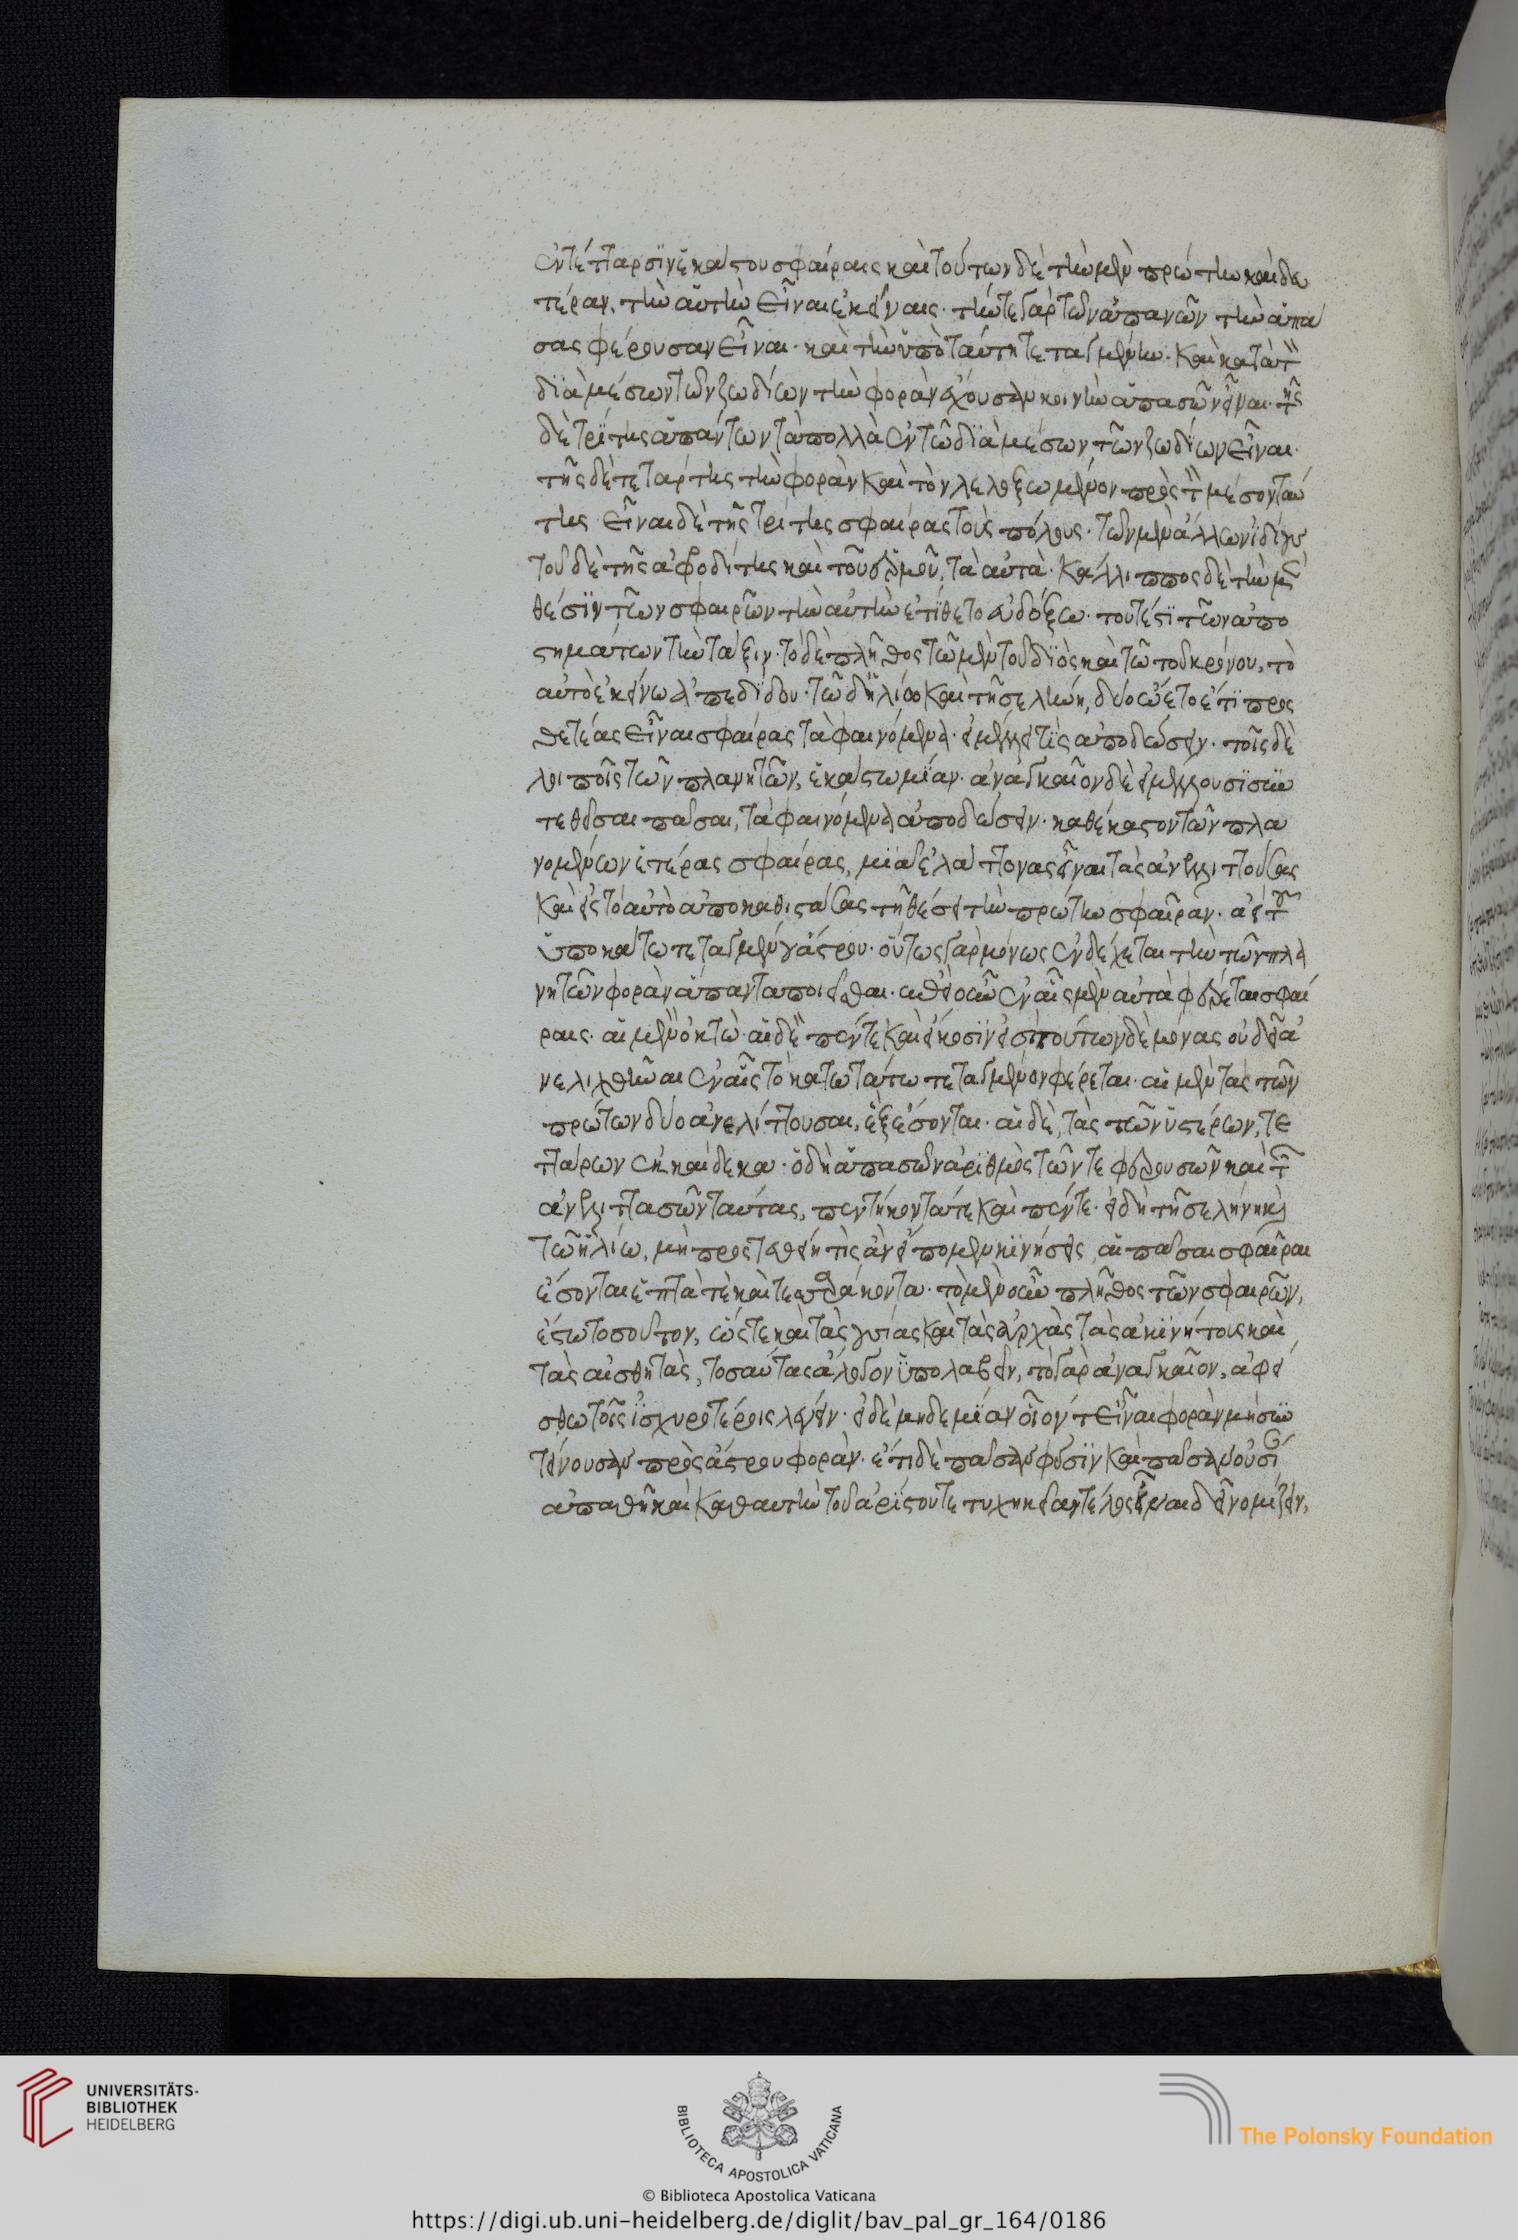 ἐν τέτταρσϊν ἑκάστου σφαίραις καὶ τούτων δὲ τὴν μὲν πρώτην καὶ δευ
τέραν, τὴν αὐτὴν εἶναι ἐκείναις· τήν τε γὰρ τῶν ἀπλανῶν τὴν ἁπά
σας φέρουσαν εἶναι· καὶ τὴν ὑπὸ ταύτῃ τεταγμένην· καὶ κατὰ τὸν
διὰ μέσων τῶν ζωδίων τὴν φορὰν ἔχουσαν κοινὴν ἁπασῶν εἶναι· τῆς
δὲ τρίτης ἁπάντων τὰ πολλὰ ἐν τῶ διὰ μέσων τῶν ζωδίων εἶναι·
τῆς δὲ τετάρτης τὴν φορὰν καὶ τὸν λελοξωμένον πρὸς τὸν μέσον ταύ
της· εἶναι δὲ τῆς τρίτης σφαίρας τοὺς πόλους· τῶν μὲν ἄλλων ἰδίους
τοὺς δὲ τῆς ἀφροδίτης καὶ τοῦ ἑρμοῦ, τὰ αὐτά· Κάλλιππος δὲ τὴν μὲν
θέσϊν τῶν σφαιρῶν τὴν αὐτὴν ἐτίθετο εὐδόξω· τουτέστι τῶν ἀπο
στημάτων τὴν τάξιν· τὸ δὲ πλῆθος τῶ μὲν τοῦ διὸς καὶ τῶ τοῦ κρόνου, τὸ
αὐτὸ ἐκείνω ἀπεδίδου· τῶ δ' ἡλίω καὶ τῆ σελήνη, δύο ὤετο ἔτι προς
θετέας εἶναι σφαίρας τὰ φαινόμενα· εἰ μέλλει τὶς ἀποδώσειν· τοῖς δὲ
λοιποῖς τῶν πλανητῶν, ἑκάστω μίαν· ἀναγκαῖον δὲ εἰ μέλλουσϊ συν
τεθεῖσαι πᾶσαι, τὰ φαινόμενα ἀποδώσειν· καθ' ἕκαστον τῶν πλα
νομένων ἑτέρας σφαίρας, μιᾶ ἐλάττονας εἶναι τὰς ἀνελιττούσας
καὶ εἰς τὸ αὐτὸ ἀποκαθιστάσας τῆ θέσει τὴν πρώτην σφαῖραν· ἀεὶ τοῦ
ὑποκάτω τεταγμένου ἄστρου· οὕτως γὰρ μόνως ἐνδέχεται τὴν τῶν πλα
νητῶν φορὰν ἅπαντα ποιεῖσθαι· ἐπεὶ οὖν ἐν αἷς μὲν αὐτὰ φέρεται σφαί
ραις· αἱ μὲν ὀκτὼ· αἱ δὲ πέντε καὶ εἴκοσϊν εἰσὶ τούτων δὲ μόνας οὐ δεῖ ἀ
νελιχθῆναι ἐν αἷς τὸ κατωτάτω τεταγμένον φέρεται· αἱ μὲν τὰς τῶν
πρώτων δύο ἀνελίττουσαι, ἓξ ἔσονται· αἱ δὲ, τὰς τῶν ὑστέρων, τε
ττάρων ἑκκαίδεκα· ὁ δὴ ἁπασῶν ἀριθμὸς τῶν τε φερουσῶν καὶ τῶν
ἀνελιττουσῶν ταύτας, πεντήκοντά τε καὶ πέντε· εἰ δὴ τῆ σελήνη καὶ
τῶ ἡλίω, μὴ προστιθείη τὶς ἃς εἴπομεν κινήσεις, αἱ πᾶσαι σφαῖραι
ἔσονται ἑπτὰ τὲ καὶ τετταράκοντα· τὸ μὲν οὖν πλῆθος τῶν σφαιρῶν,
ἔστω τοσοῦτον, ὥστε καὶ τὰς οὐσίας καὶ τὰς ἀρχὰς τὰς ἀκινήτους καὶ
τὰς αἰσθητὰς, τοσαύτας εὔλογον ὑπολαβεῖν, τὸ γὰρ ἀναγκαῖον, ἀφεί
σθω τοῖς ἰσχυροτέροις λέγειν· εἰ δὲ μηδεμίαν οἷον τ' εἶναι φορὰν μὴ συν
τείνουσαν πρὸς ἄστρου φοράν· ἔτι δὲ πᾶσαν φύσιν καὶ πᾶσαν οὐσί
ἀπαθῆ καὶ καθ' αὑτὴν τοῦ ἀρίστου τετυχηκυῖαν τέλος εἶναι δεῖ νομίζειν,
UNIVERSITÄTS-
BIBLIOTHEK
HEIDELBERG
BIBLIOTECA APOSTOLICA VATICANA
The Polonsky Foundation
© Biblioteca Apostolica Vaticana
https://digi.ub.uni-heidelberg.de/diglit/bav_pal_gr_164/0186